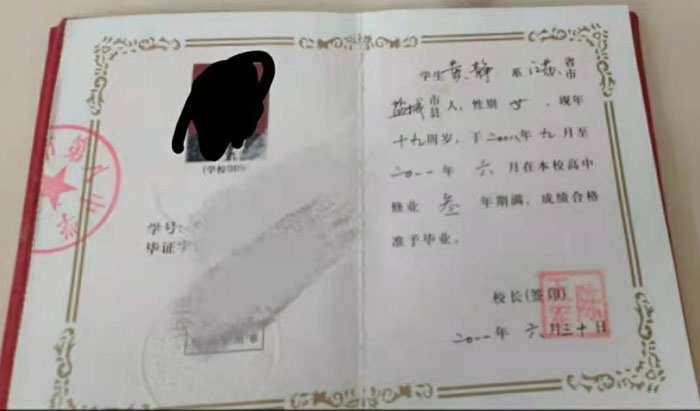 (学校钢印)
学号:
毕证字
学生黄静,系江苏省市
盐城市县人,性别女,现年
十九周岁,于二〇〇八年九月至
二〇一一年六月在本校高中
修业叁年期满,成绩合格
准予毕业。
校长(签印)
二〇一一年六月三十日